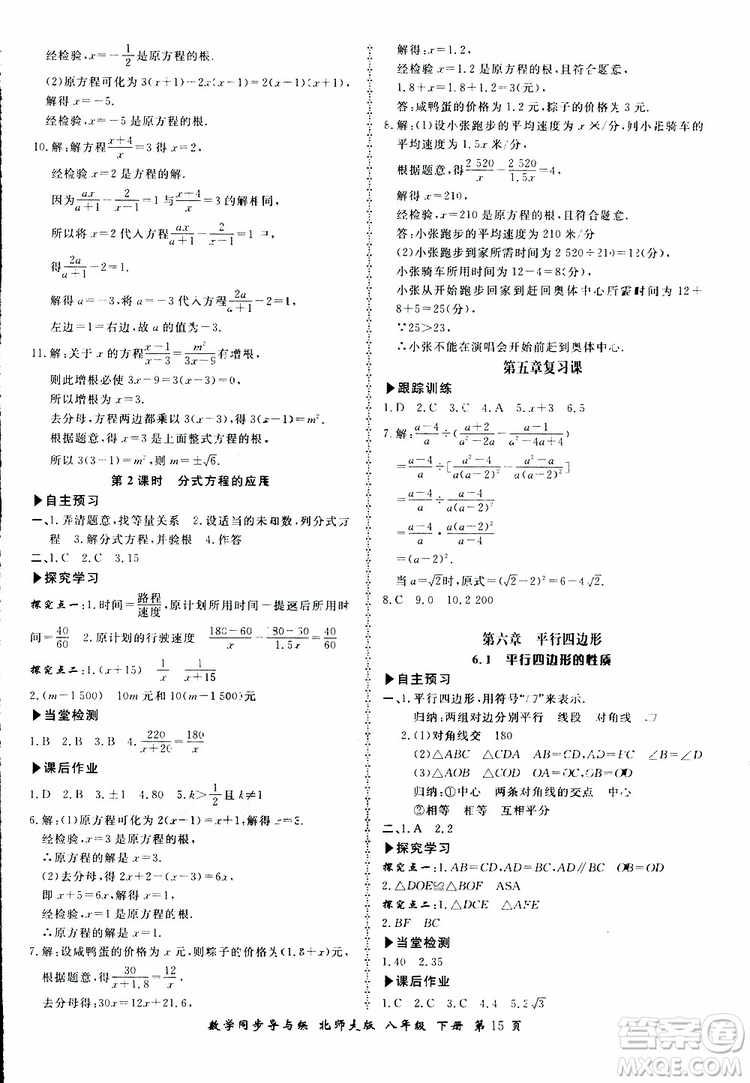 经检验，x=-1/2是原方程的根.
(2)原方程可化为 3(x+1)-2x(x-1)=…
解得 x=-5.
经检验，x=-5 是原方程的根.
10.解:解方程(x+4)/x=3 得 x=2
经检验 x=2 是原方程的根.
因为 ax/(a+1)-2/(x-1)=1 与(x+4)/x=3 的解相同，
所以将 x=2 代入方程 ax/(a+1)-2/(x-1)=1
得 2a/(a+1)-2=1
解得 a=-3，经检验，当 a=-3 时，
左边=1=右边，故 a 的值为-3.
11.解:关于 x 的方程
有增根，
所以
去分母，方程两边都乘
得 3(x-1)=m².
所以 3(3-1)=m²，则 m=±√6.
第 2 课时 分式方程的应用
自主预习
一、1.弄清题意，找等量关系 2.设适当的未知数，列分式方
程 3.解分式方程，并验根 4.作答
二、1.C 2.C 3.15
探究学习
探究点一:1.时间=路程/速度，原计划所用时间-提速后所用时
间=40/60 2.原计划的行驶速度 (180-60)/x-(180-60)/1.5x=40/60
探究点二:1.(x+15) 4/x=
2.(m-1 500) 10m元和10(m-1 500)元
当堂检测
1.B 2.B 3.B 4.220/(x+20)=180/x
课后作业
1.D 2.D 3.±1 4.80 5.a<1 且 a≠1/2
6.解:(1)原方程可化为 2(x-1)=x+1，解得 x=3.
经检验，x=3 是原方程的根，
∴原方程的解为 x=3.
(2)去分母，得
即
经检验，x=1 是原方程的根，
∴原方程的解为 x=1.
7.解:设咸鸭蛋的价格为 x 元，则粽子的价格为(x+1.8)元.
根据题意，得 30/(x+1.8)=12/x
去分母得 30x=12x+21.6.
解得 x=1.2，
经检验，x=1.2 是原方程的根，且符合题意.
1.8+x=1.8+1.2=3(元).
答:咸鸭蛋的价格为 1.2 元，粽子的价格为 3 元.
8.解:(1)设小张跑步的平均速度为 x 米/分，则小张骑车的
平均速度为 1.5x 米/分.
根据题意，得 2 520/x-2 520/1.5x=4
解得 x=210，
经检验，x=210 是原方程的根，且符合题意.
答:小张跑步的平均速度为 210 米/分
(2)小张跑步到家所需时间为 2 520÷210=12(分)
小张骑车所用时间为 12-4=8(分)
小张从开始跑步回家到赶回奥体中心所需时间为 12+8+
5=25(分)
∵25>23，
∴小张不能在演唱会开始前赶到奥体中心.
第五章复习课
跟踪训练
1.D 2.C 3.C 4.A 5.x+3 6.5
7.解:(a-4)/a÷((a+2)/(a²-2a)-(a-1)/(a²-4a+4))
=(a-4)/a÷[(a²-4)/a(a-2)²-(a²-a)/a(a-2)²]
=(a-4)/a÷(a-4)/a(a-2)²
=(a-4)/a·a(a-2)²/(a-4)
=(a-2)².
当 a=√2时，原式=(√2-2)²=6-4√2.
8.C 9.0 10.2 200
第六章 平行四边形
6.1 平行四边形的性质
自主预习
一、1.平行四边形，用符号“▱”来表示.
归纳:两组对边分别平行 线段 对角线 ▱
2.(1)对角线交 180
(2)△ABC △CDA AD ∠B ∠D
(3)△AOB △COD OC OD
归纳:①中心 两条对角线的交点 中心
②相等 相等 互相平分
二、1.A 2.2
探究学习
探究点一:1.AB=CD AB∥CD OB=OD
2.△DOE≌△BOF ASA
探究点二:1.▱DCE ▱ADE
2.BF BF=CD
当堂检测
1.40 2.35
课后作业
1.C 2.A 3.D 4.C 5.2√3
数学同步导与练 北师大版 八年级 下册 第 15 页